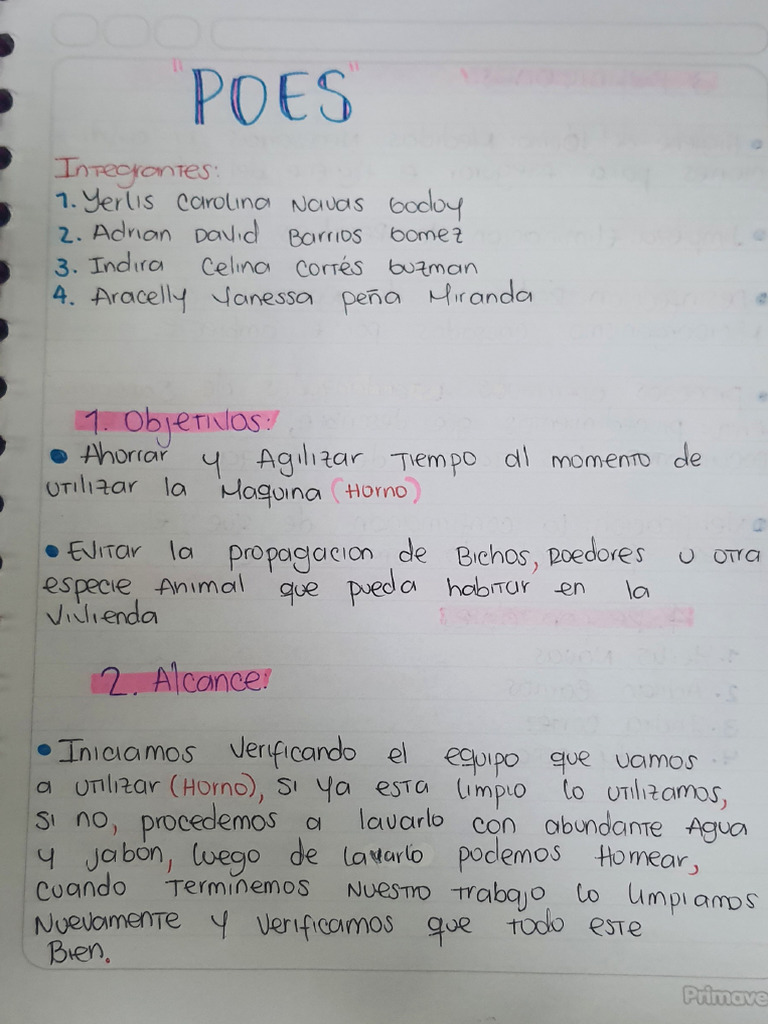 "POES"
Integrantes:
1. Yerlis Carolina Navas Godoy
2. Adrian David Barrios Gomez
3. Indira Celina Cortés Guzman
4. Aracelly Vanessa Peña Miranda
1. Objetivos:
• Ahorrar y Agilizar Tiempo al momento de
utilizar la Maquina (Horno)
• Evitar la propagacion de Bichos, Roedores u otra
especie Animal que pueda habitar en la
Vivienda
2. Alcance:
• Iniciamos Verificando el equipo que vamos
a utilizar (Horno), si ya esta limpio lo utilizamos,
si no, procedemos a lavarlo con abundante Agua
y jabón, luego de lavarlo podemos Hornear,
cuando terminemos nuestro trabajo lo limpiamos
Nuevamente y verificamos que todo este
Bien.
Primave